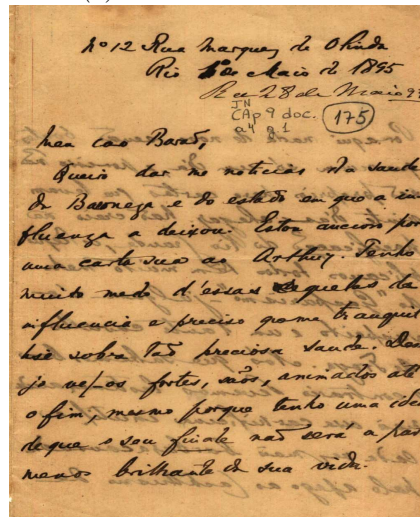 Nº 12 Rua Marquez de Olinda
Rio 1º de Maio de 1895
Rec 28 de Maio 95
JN
CAp 9 doc.
P4 g 1
175
Meu caro Barão,
Queira dar me noticias da saude
da Baroneza e do estado em que a in
fluenza a deixou. Estou ancioso por
uma carta sua ao Arthur. Tenho
muito medo d'essas sequelas da
influenza e preciso que me tranquil
lise sobre tão preciosa saude. Dese
jo vel-os fortes, sãos, animados até
o fim, mesmo porque tenho uma idéa
de que o seu finale não será a parte
menos brilhante da sua vida.